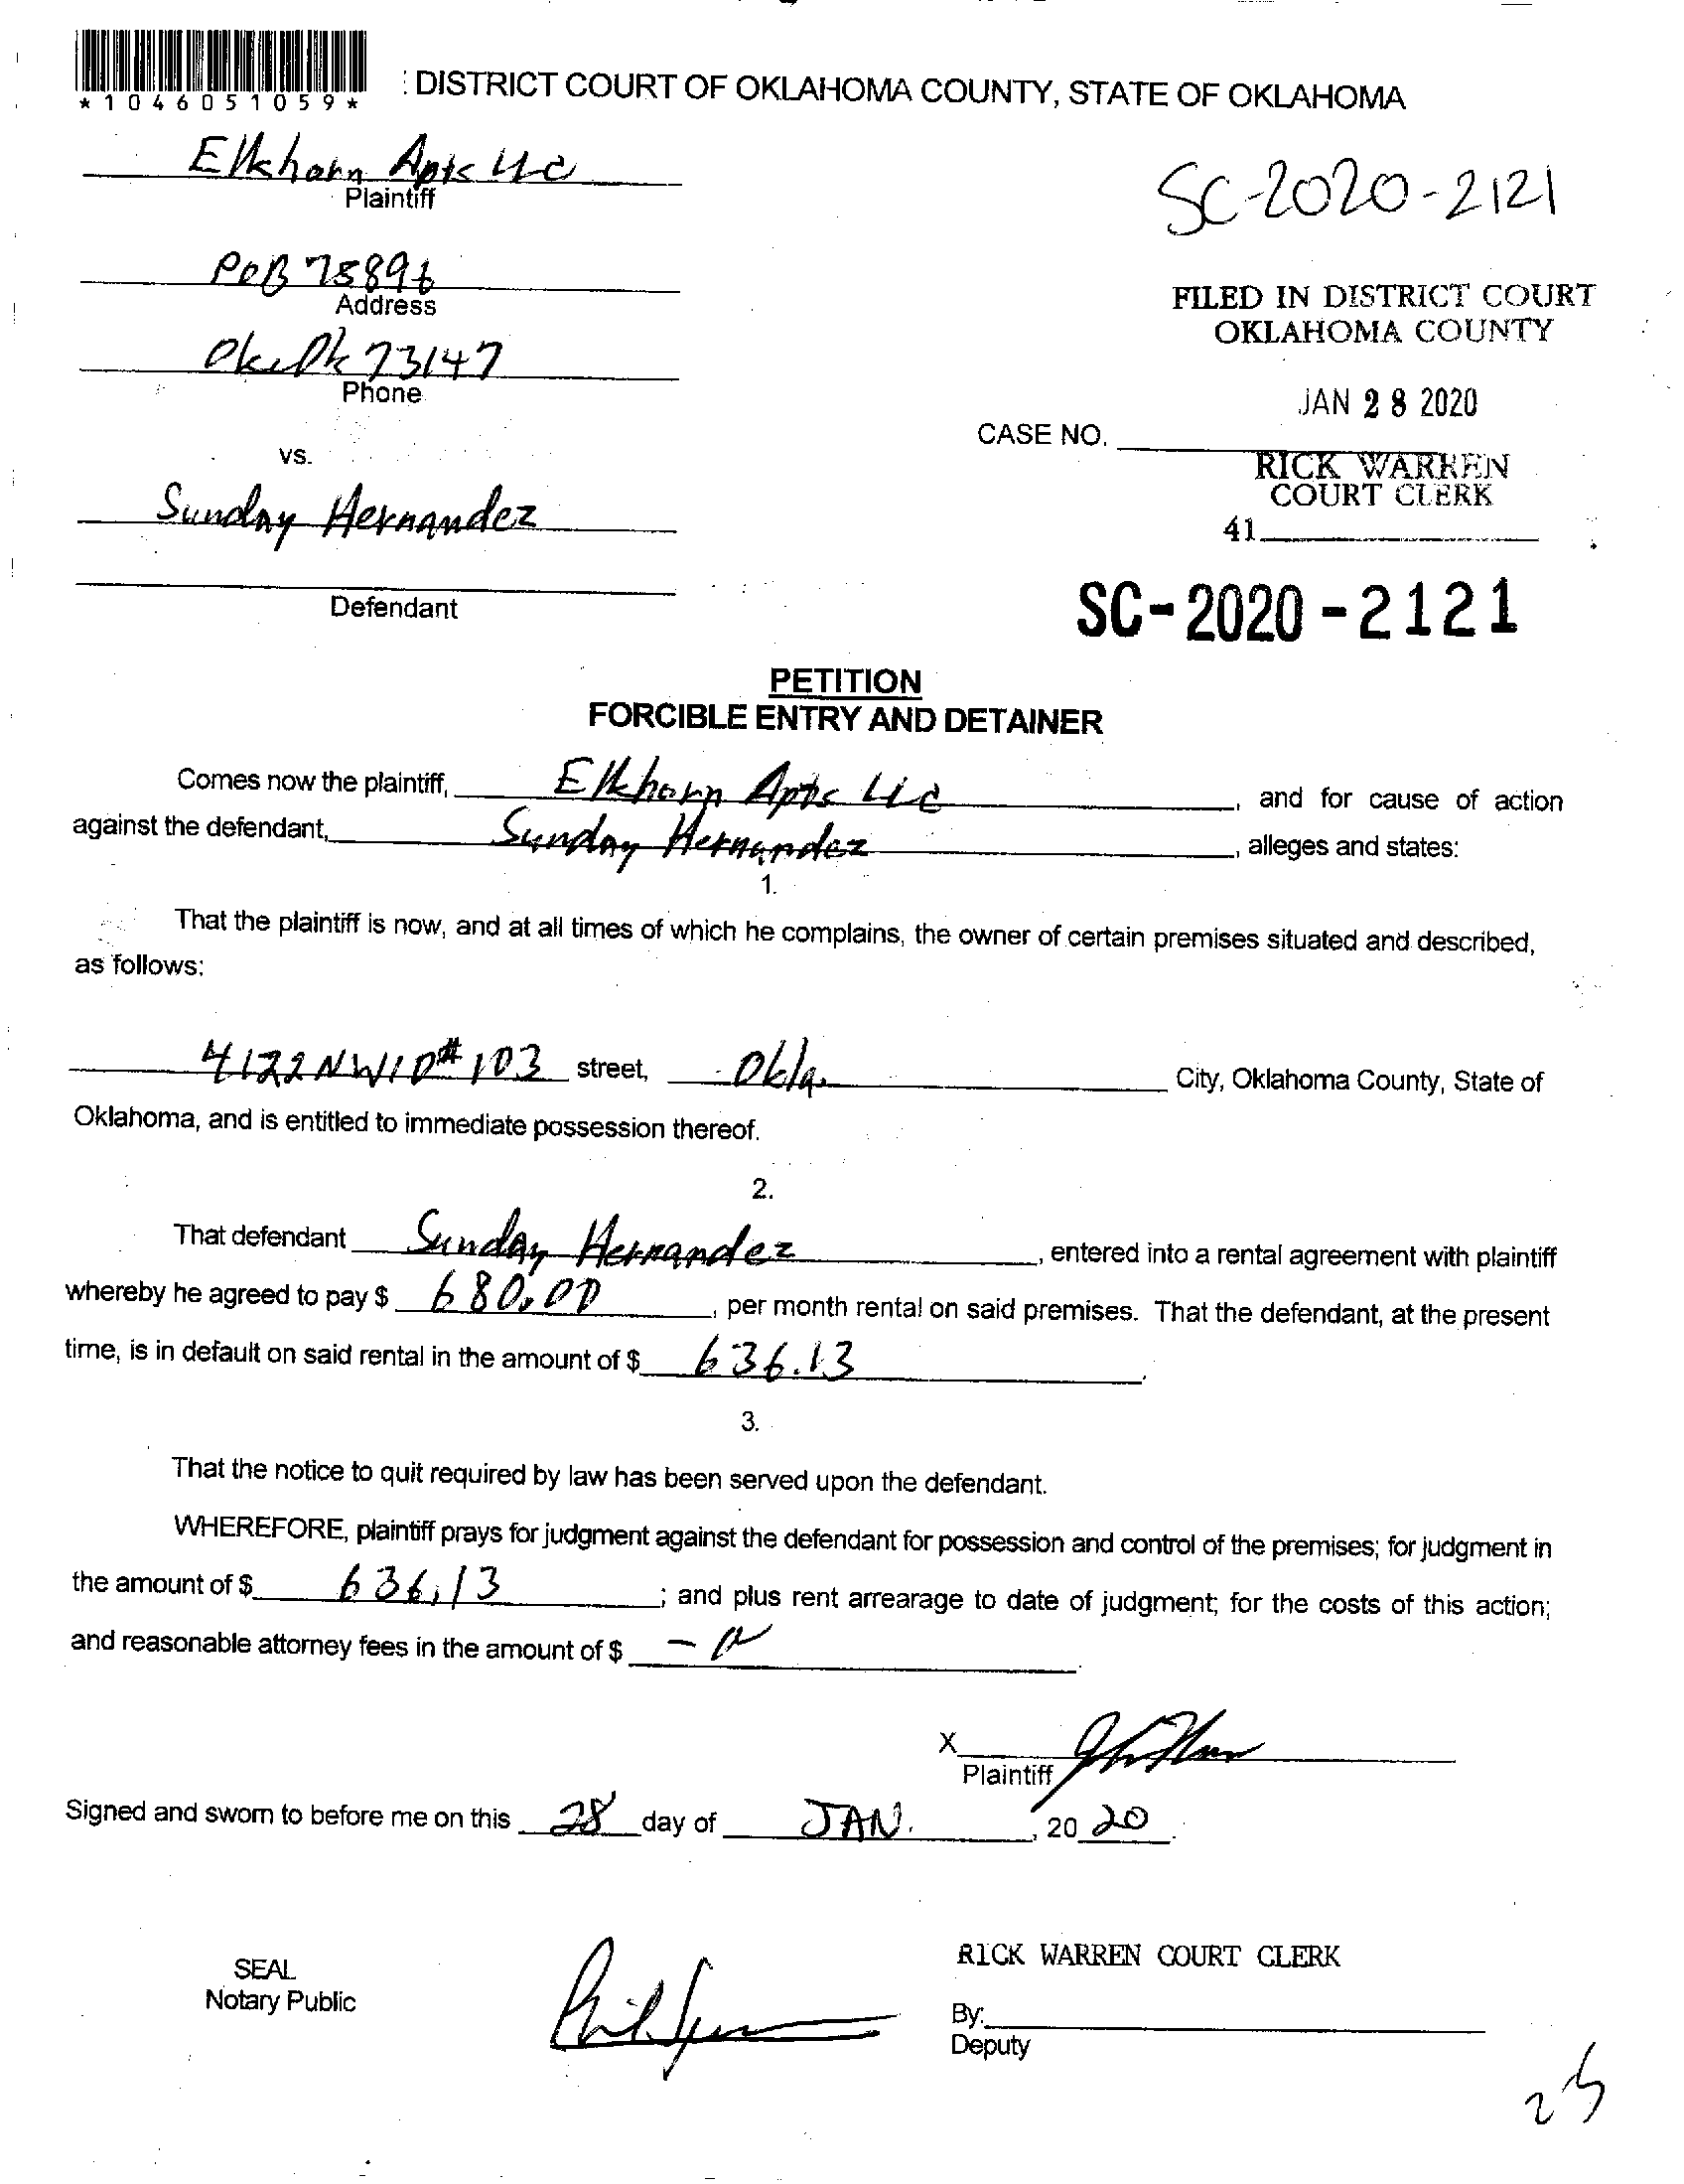 *1046051059*
DISTRICT COURT OF OKLAHOMA COUNTY, STATE OF OKLAHOMA
Elkhorn Apts LLC
Plaintiff
SC-2020-2121
POB 75896
Address
FILED IN DISTRICT COURT
OKLAHOMA COUNTY
73147
Phone
JAN 28 2020
CASE NO.
RICK WARREN
COURT CLERK
41
vs.
Sunday Hernandez
Defendant
SC-2020-2121
PETITION
FORCIBLE ENTRY AND DETAINER
Comes now the plaintiff, Elkhorn Apts LLC, and for cause of action
against the defendant, Sunday Hernandez, alleges and states:
1.
That the plaintiff is now, and at all times of which he complains, the owner of certain premises situated and described,
as follows:
4122 NW10 #103 street, Okla. City, Oklahoma County, State of
Oklahoma, and is entitled to immediate possession thereof.
2.
That defendant Sunday Hernandez, entered into a rental agreement with plaintiff
whereby he agreed to pay $ 680.00, per month rental on said premises. That the defendant, at the present
time, is in default on said rental in the amount of $ 636.13.
3.
That the notice to quit required by law has been served upon the defendant.
WHEREFORE, plaintiff prays for judgment against the defendant for possession and control of the premises; for judgment in
the amount of $ 636.13; and plus rent arrearage to date of judgment; for the costs of this action;
and reasonable attorney fees in the amount of $
X
Plaintiff
Signed and sworn to before me on this 28 day of JAN., 2020.
SEAL
Notary Public
RICK WARREN COURT CLERK
By:
Deputy
25